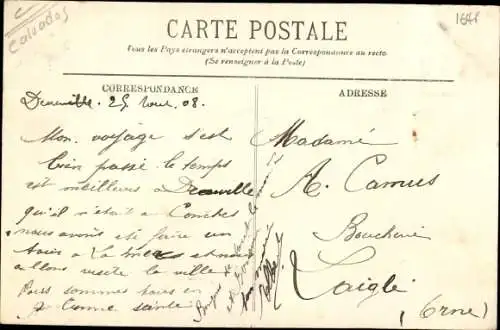 Calvados
1648
CARTE POSTALE
Tous les Pays étrangers n'acceptent pas la Correspondance au recto
(Se renseigner à la Poste)
CORRESPONDANCE
Deauville. 25 Aout 08.
Mon voyage s'est
bien passé le temps
est meilleurs a Deauville
qu'il n'était a Conches
nous avons été faire un
tour a La mer et nous
allons visité la ville
nous sommes tous en
bonne santé
ADRESSE
Madame
A. Camus
Boucherie
Laigle
(Orne)